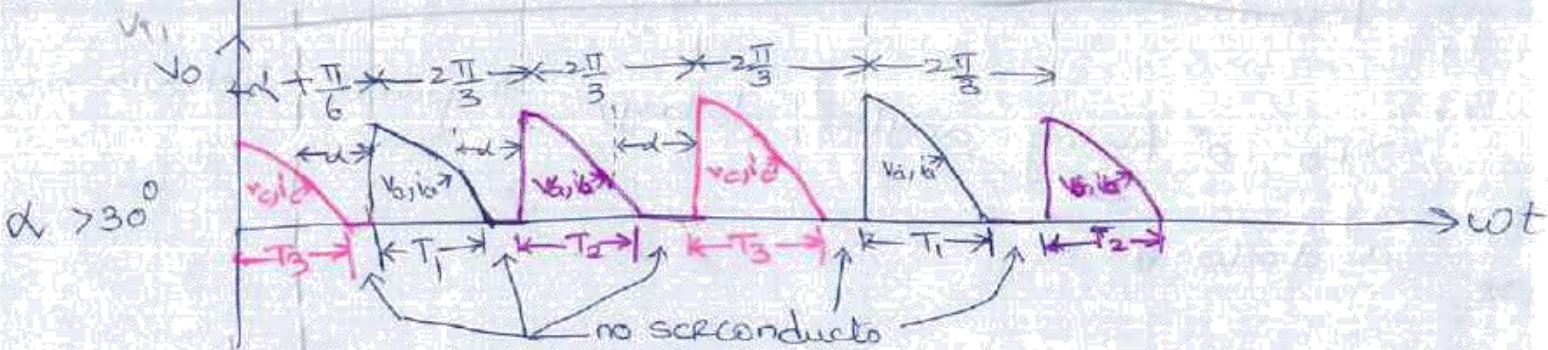 V₀
α + π/6 2π/3 2π/3 2π/3 2π/3
α α α
v_c, i_c v_a, i_a v_c, i_c v_a, i_a
α >30⁰
ωt
T₃ T₁ T₂ T₃ T₁ T₂
no SCR conducts